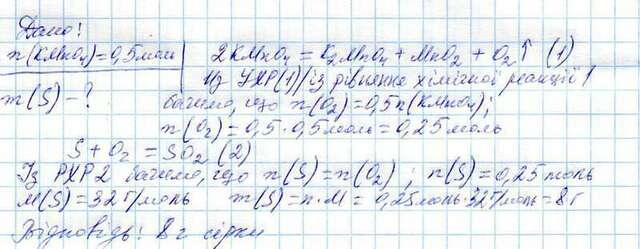 Дано!
n(KMnO4)=0,5моль | 2KMnO4 = K2MnO4 + MnO2 + O2↑ (1)
m(S) - ? Із УХР(1)/із рівняння хімічної реакції/
бачимо, що n(O2)=0,5n(KMnO4);
n(O2)=0,5·0,5моль=0,25моль
S + O2 = SO2 (2)
Із РХР2 бачимо, що n(S)=n(O2); n(S)=0,25моль
M(S)=32г/моль m(S)=n·M=0,25моль·32г/моль=8г
Відповідь: 8г сірки